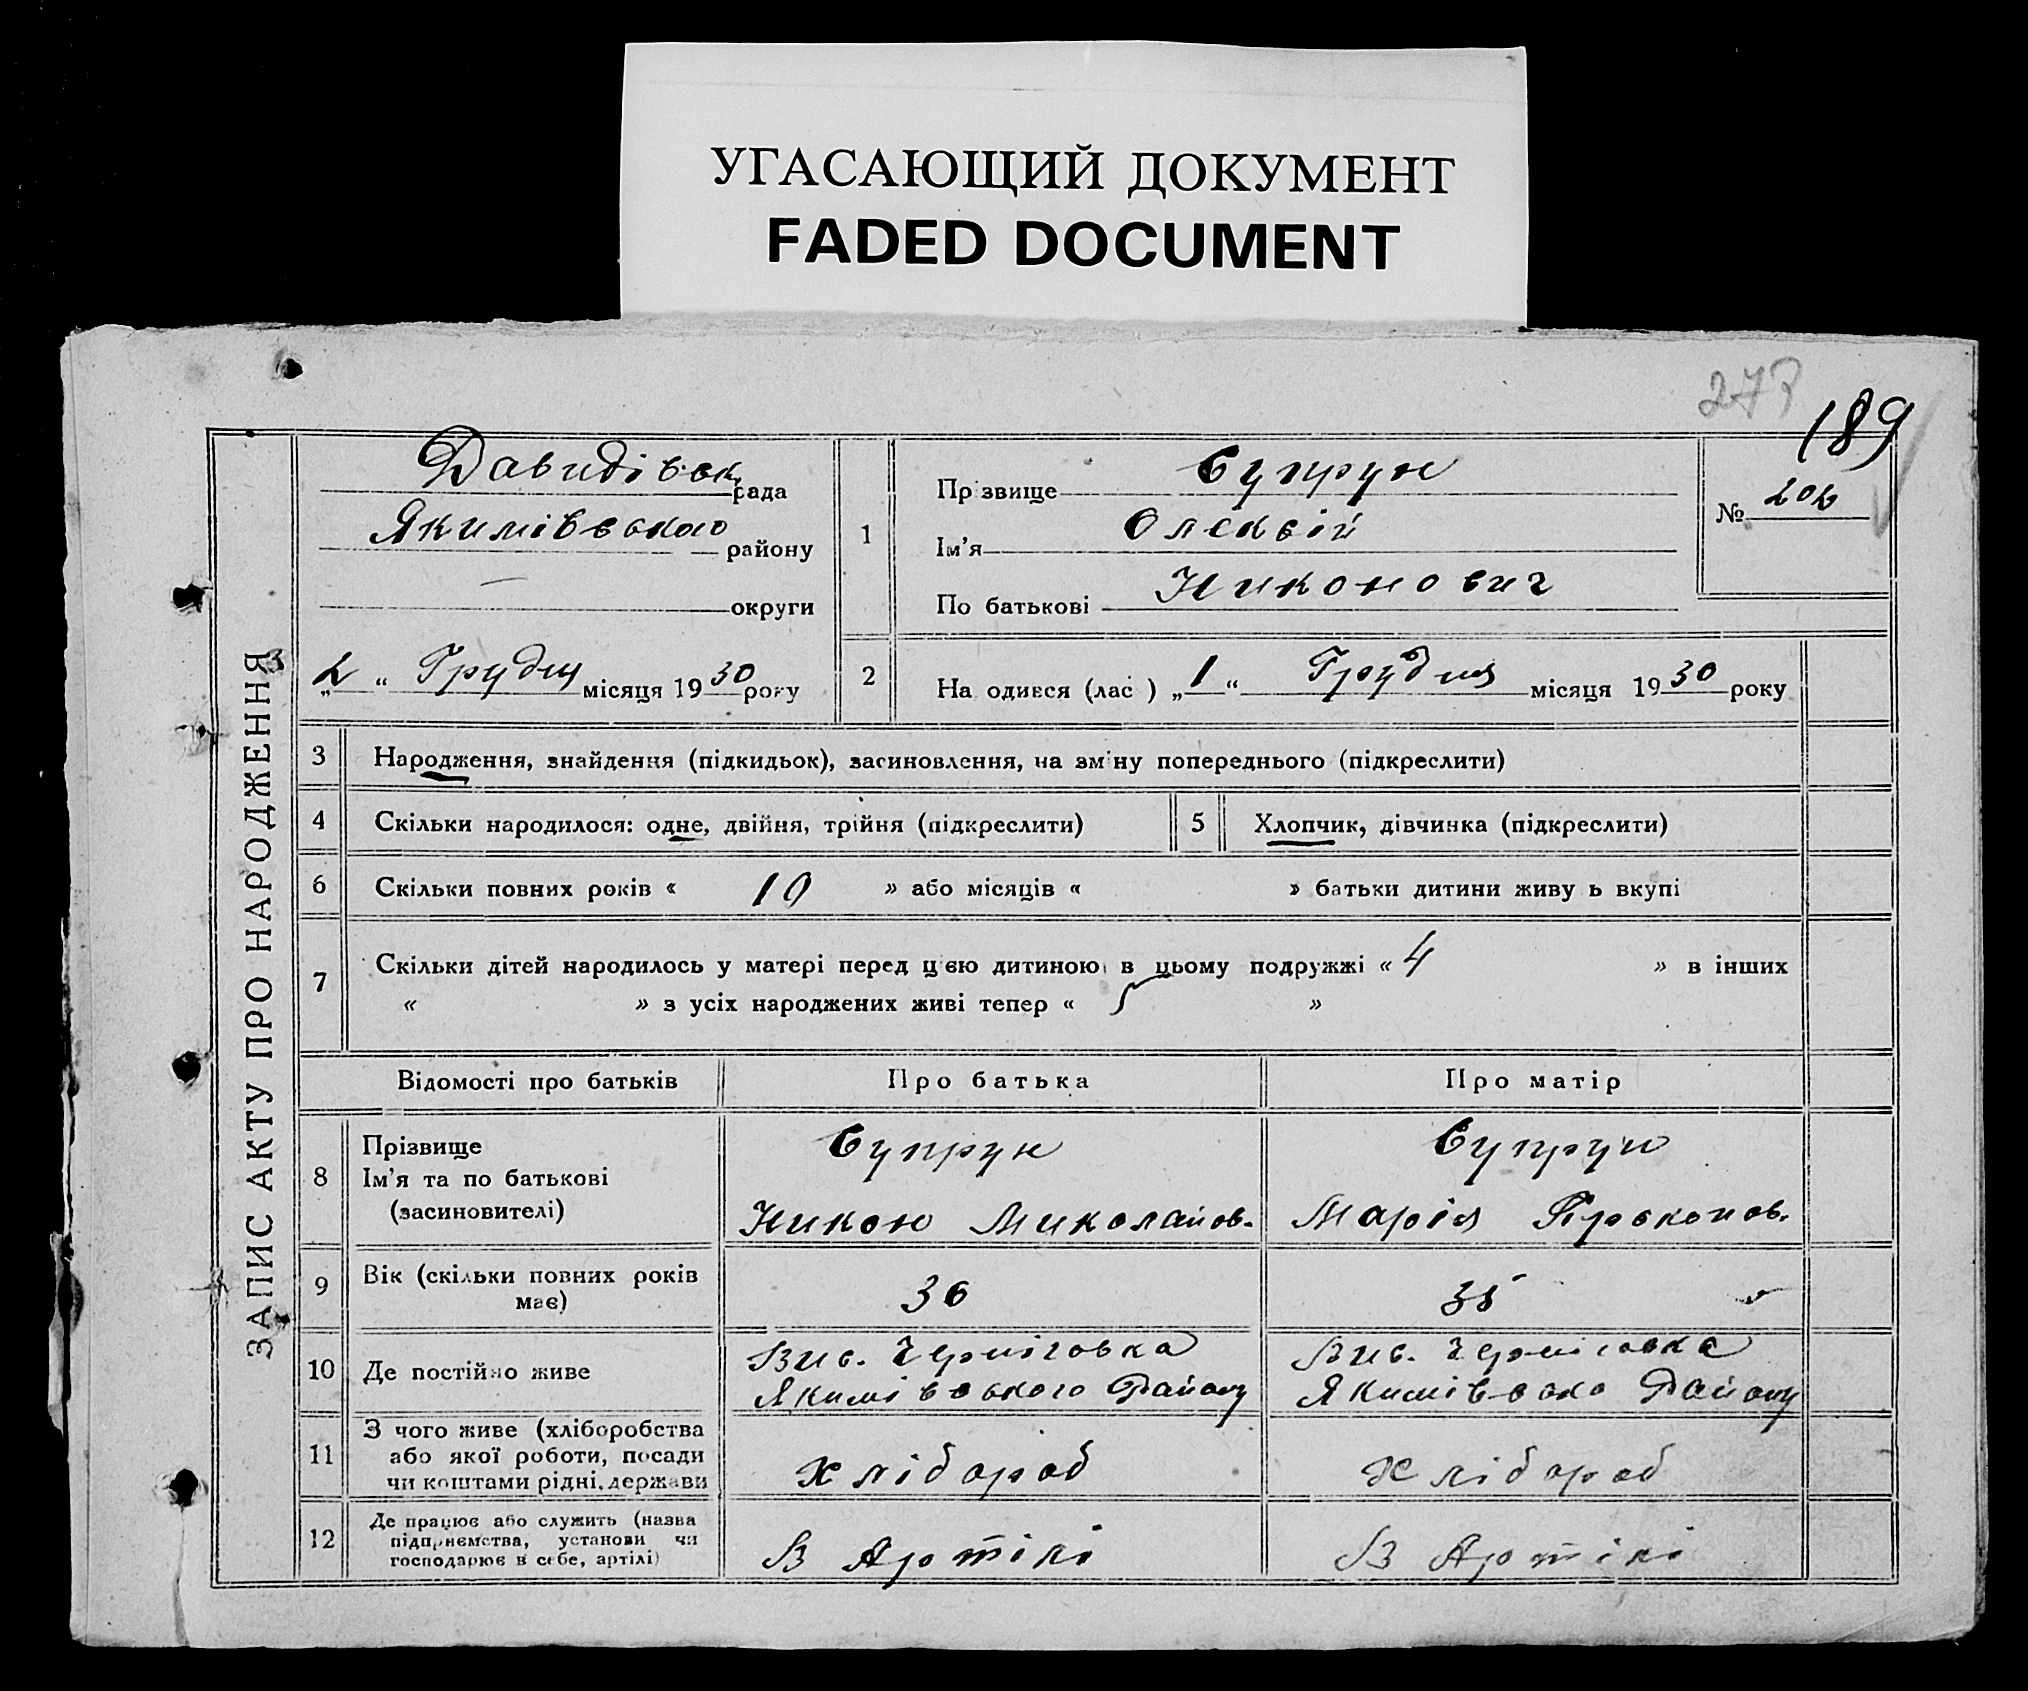 УГАСАЮЩИЙ ДОКУМЕНТ
FADED DOCUMENT
273
189
ЗАПИС АКТУ ПРО НАРОДЖЕННЯ
Давидівськ. рада
Якимівського району
— округи
„2“ Грудня місяця 1930 року
1
Прізвище Супрун
Ім'я Олексій
По батькові Никонович
№ 202
2
На одився (лас ) „1“ Грудня місяця 1930 року
3 Народження, знайдення (підкидьок), засиновлення, на зміну попереднього (підкреслити)
4 Скільки народилося: одне, двійня, трійня (підкреслити)
5 Хлопчик, дівчинка (підкреслити)
6 Скільки повних років « 10 » або місяців « » батьки дитини живу ь вкупі
7 Скільки дітей народилось у матері перед цією дитиною в цьому подружжі « 4 » в інших
« » з усіх народжених живі тепер « »
Відомості про батьків Про батька Про матір
8 Прізвище
Ім'я та по батькові
(засиновителі)
Супрун
Никон Миколайов.
Супрун
Марія Прокопов.
9 Вік (скільки повних років
має)
36
35
10 Де постійно живе
Вис. Черніговка
Якимівського Району
Вис. Черніговка
Якимівсько Району
11 З чого живе (хліборобства
або якої роботи, посади
чи коштами рідні, держави
Хлібороб
Хлібороб
12 Де працює або служить (назва
підприємства, установи чи
господарює в себе, артілі)
В Артілі
В Артілі